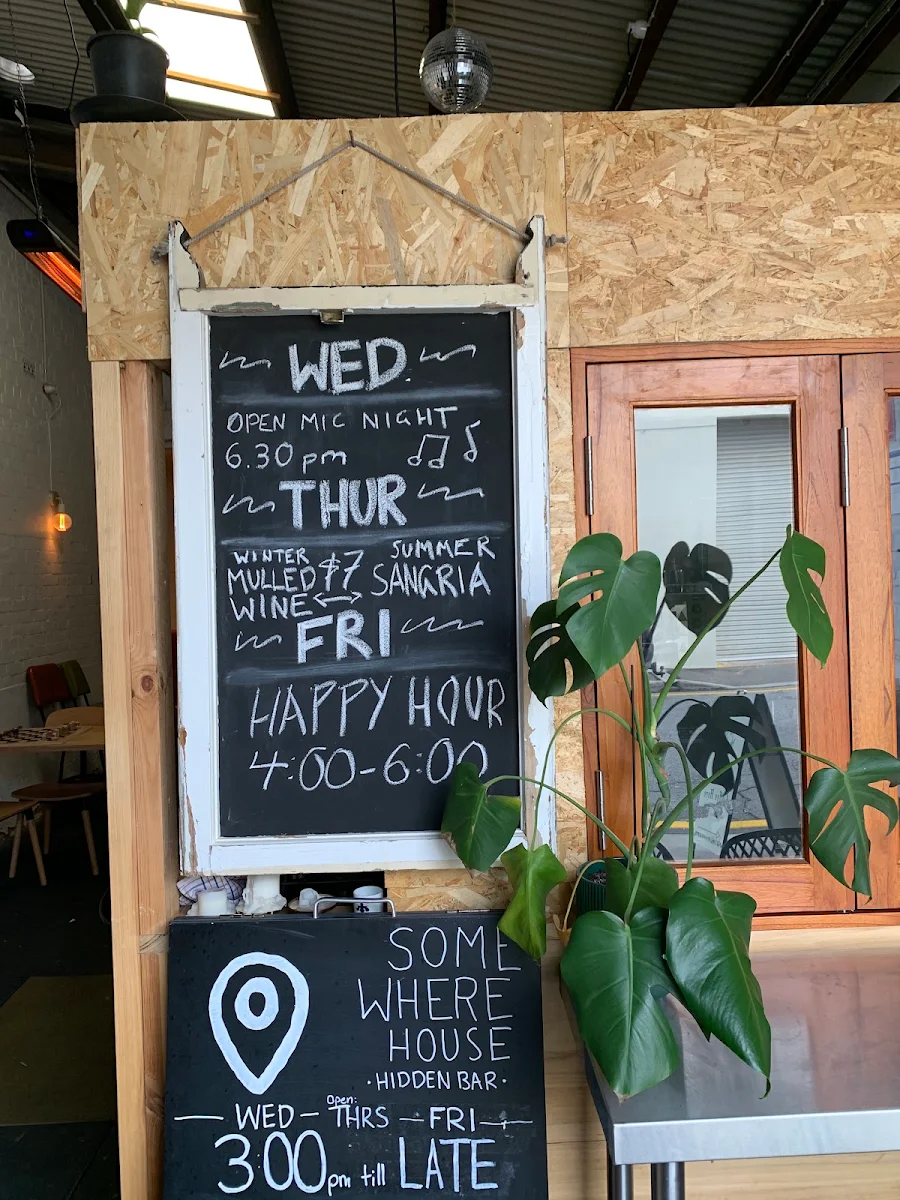 WED.
OPEN MIC NIGHT
6.30 pm
THUR
WINTER SUMMER
MULLED $7 SANGRIA
WINE
FRI
HAPPY HOUR
4:00-6:00
SOME
WHERE
HOUSE
·HIDDEN BAR·
Open:
WED - THRS - FRI
3:00pm till LATE